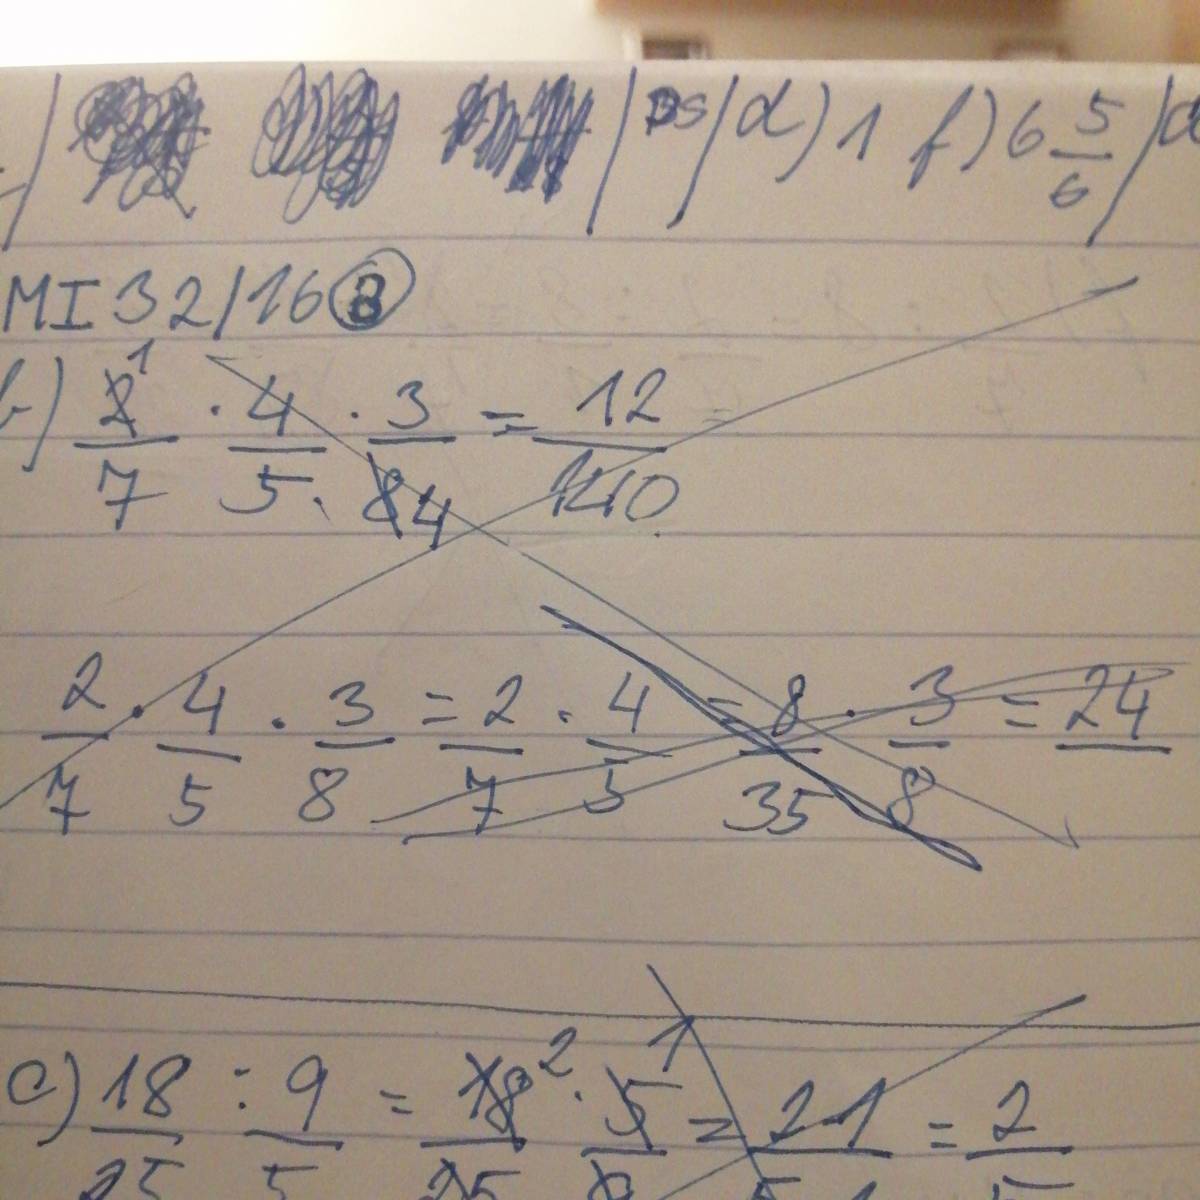 d) 1 f) 6 5/6
MI 32/16 B
b) 2/7 1 · 4/5 · 3/8 4 = 12/140
2/7 · 4/5 · 3/8 = 2/7 · 4/5 = 8/35 · 3/8 = 24
c) 18/25 : 9/5 = 18/25 2 · 5 1 = 2·1 = 2